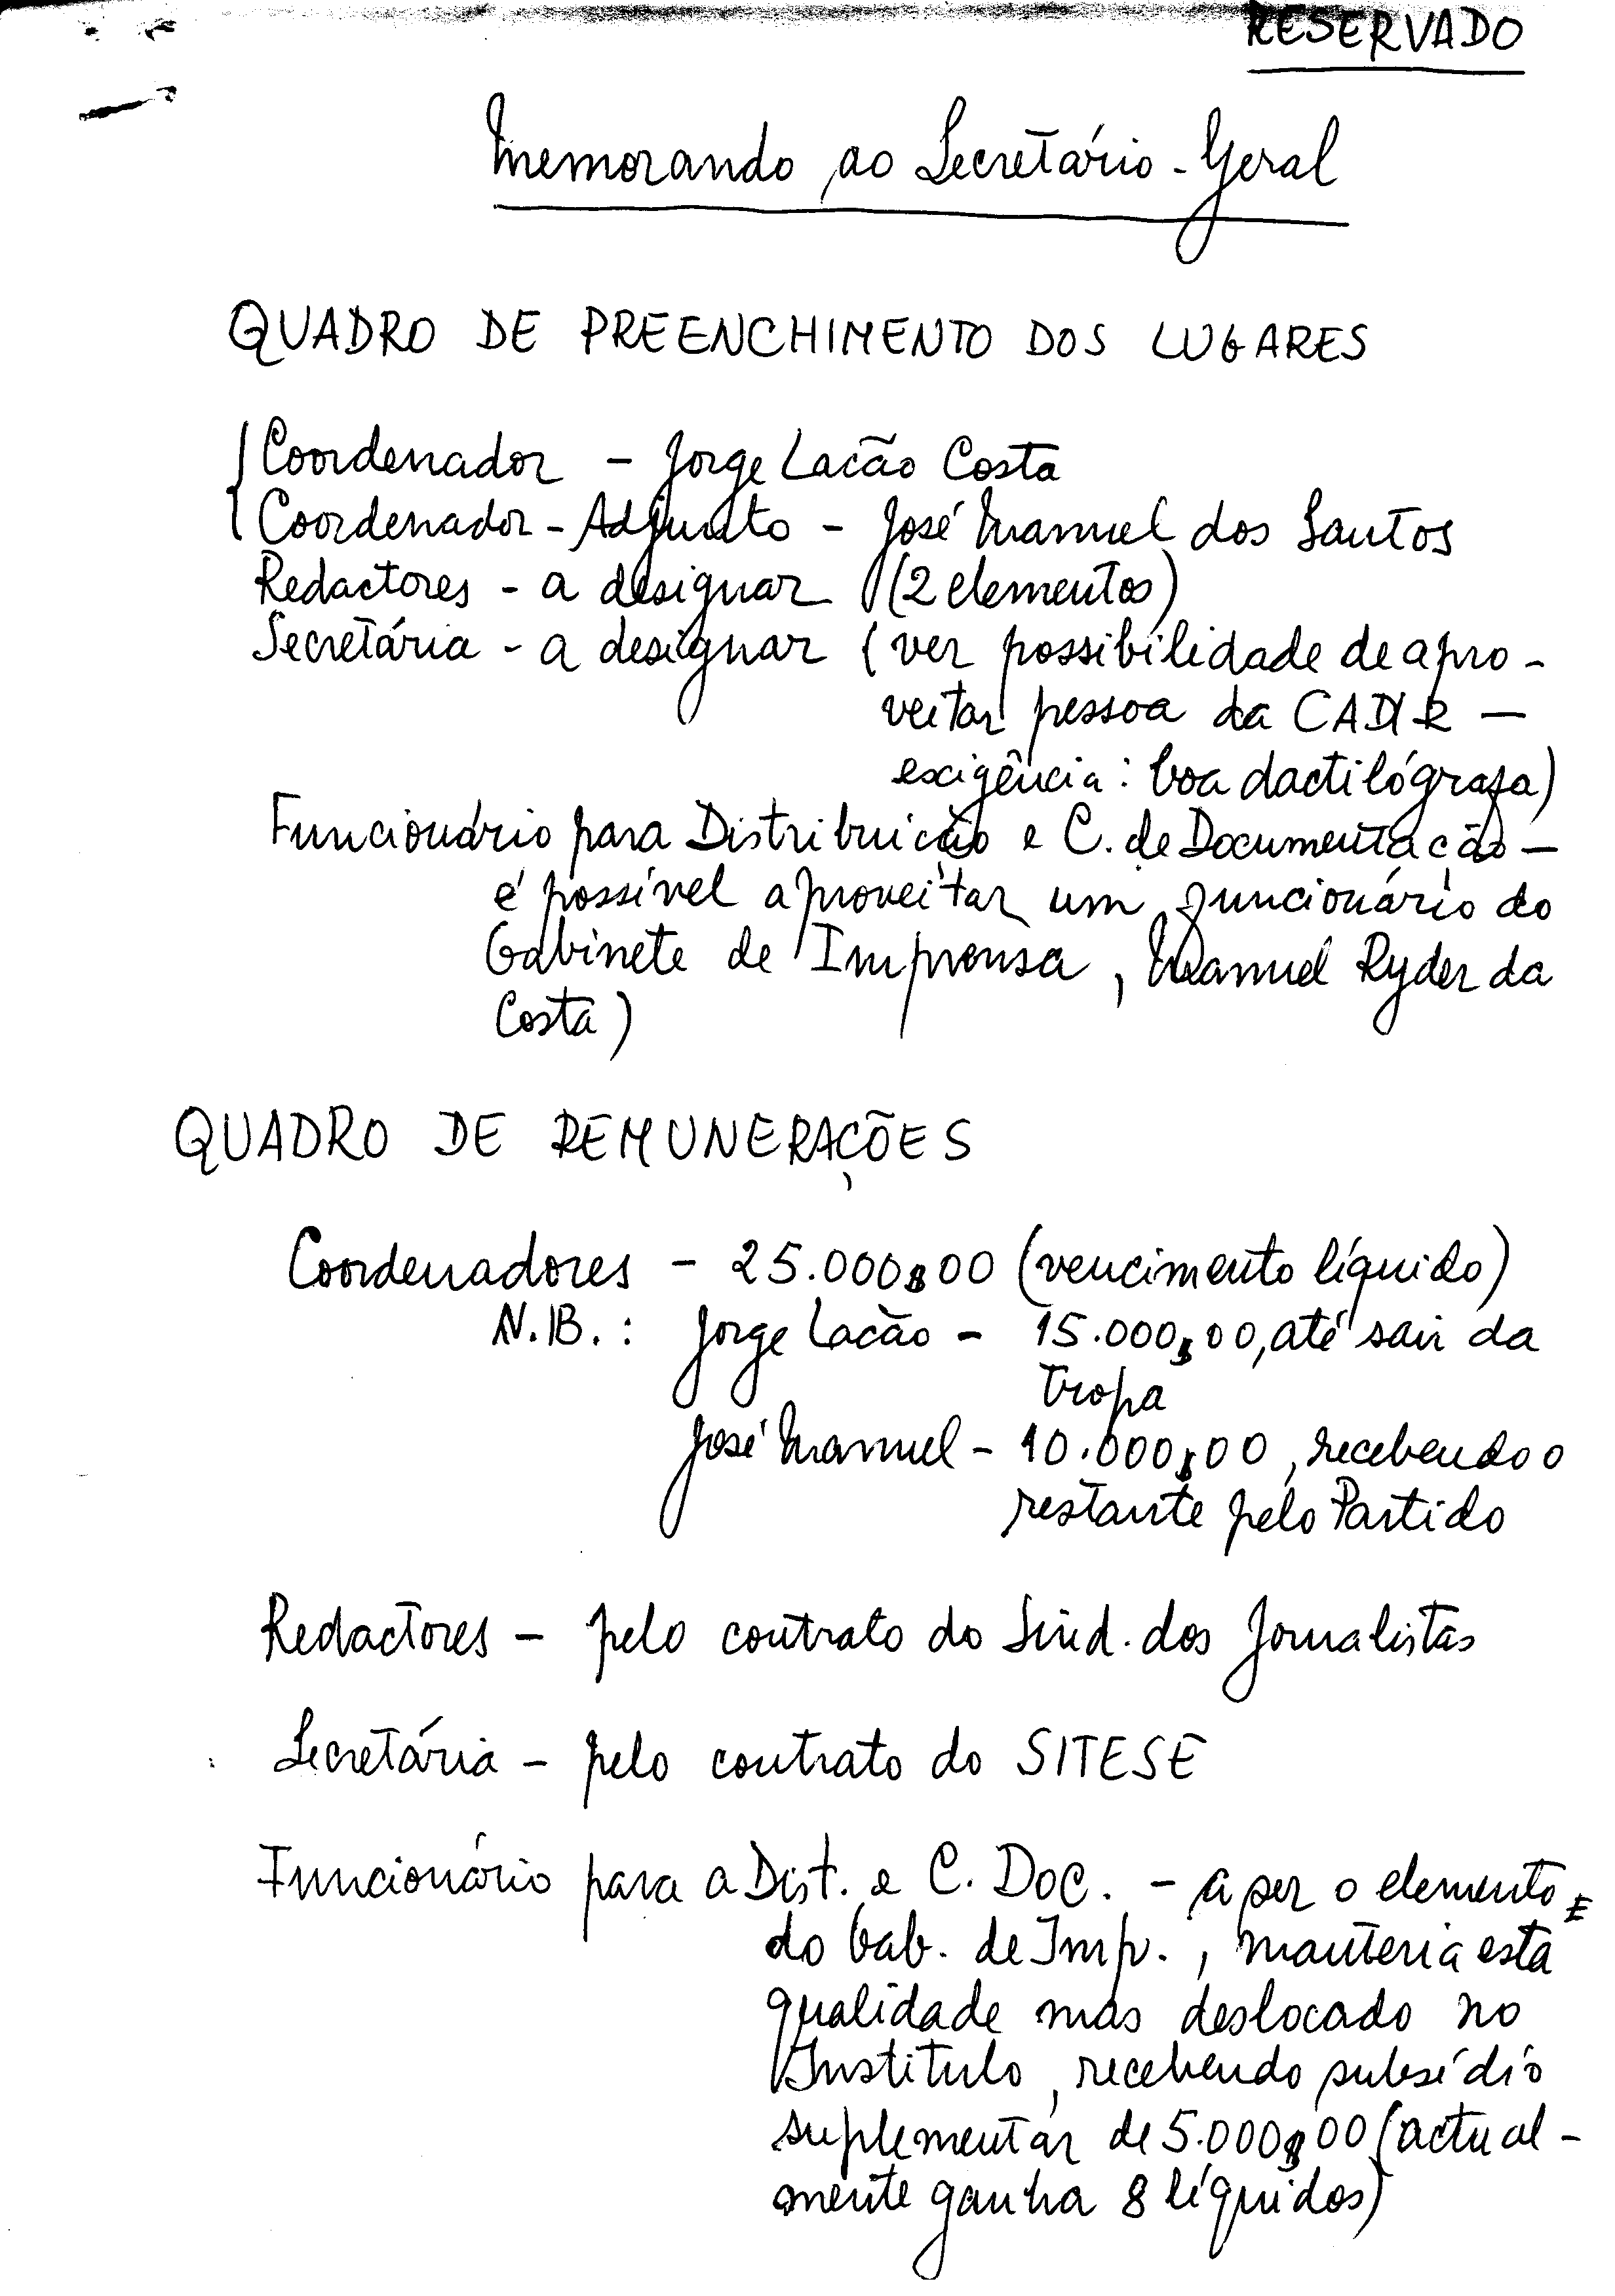 RESERVADO
Memorando ao Secretário-Geral
QUADRO DE PREENCHIMENTO DOS LUGARES
Coordenador - Jorge Lacão Costa
Coordenador-Adjunto - José Manuel dos Santos
Redactores - a designar (2 elementos)
Secretária - a designar (ver possibilidade de apro-
veitar pessoa da CADIR —
exigência: boa dactilógrafa)
Funcionário para Distribuição e C. de Documentação —
é possível aproveitar um funcionário do
Gabinete de Imprensa, Manuel Ryder da
Costa)
QUADRO DE REMUNERAÇÕES
Coordenadores - 25.000$00 (vencimento líquido)
N.B.: Jorge Lacão - 15.000$00, até sair da
tropa
José Manuel - 10.000$00, recebendo o
restante pelo Partido
Redactores - pelo contrato do Sind. dos Jornalistas
Secretária - pelo contrato do SITESE
Funcionário para a Dist. e C. Doc. - a ser o elemento
do Gab. de Imp., manteria esta
qualidade mas deslocado no
Instituto, recebendo subsídio
suplementar de 5.000$00 (actual-
mente ganha 8 líquidos)